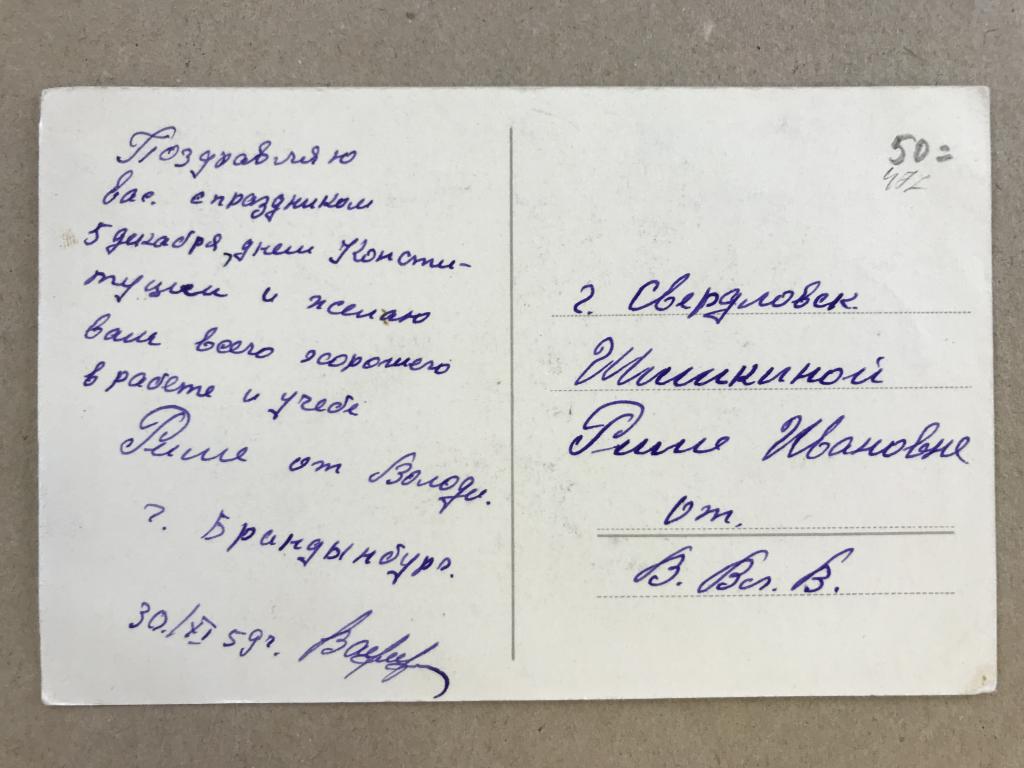 Поздравляю
вас. с праздником
5 декабря, днем Консти-
туции и желаю
вам всего хорошего
в работе и учебе
Риме от Володи.
г. Брандынбург.
30./XI 59 г.
50=
г. Свердловск
Шишкиной
Риме Ивановне
от.
В. Вл. В.